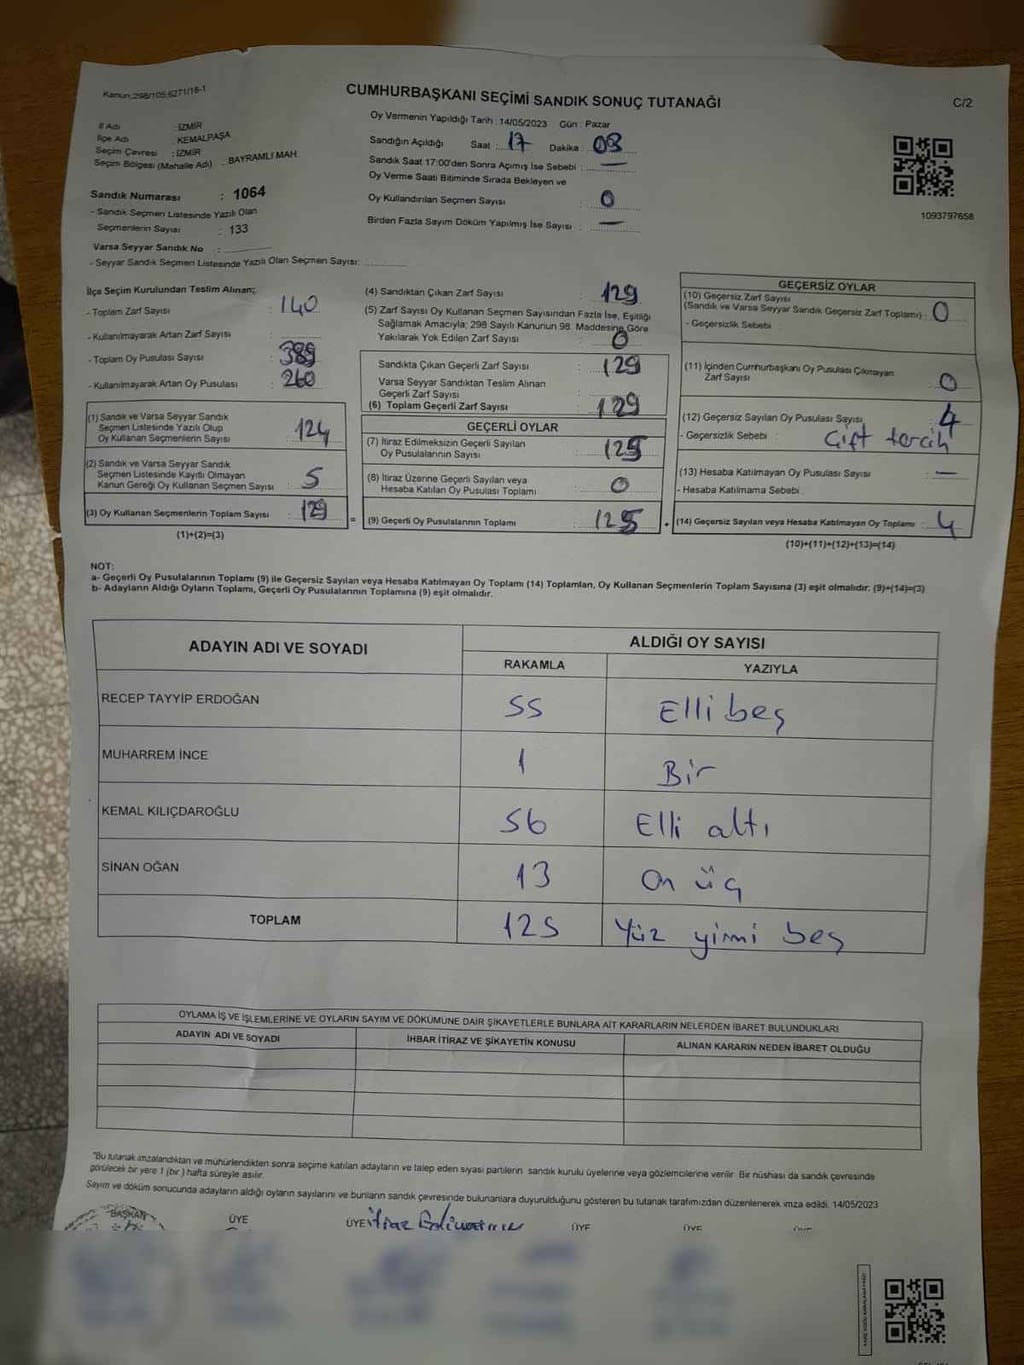 Kanun:298/105,6271/18-1
CUMHURBAŞKANI SEÇİMİ SANDIK SONUÇ TUTANAĞI
C/2
İl Adı : İZMİR
İlçe Adı : KEMALPAŞA
Seçim Çevresi : İZMİR
Seçim Bölgesi (Mahalle Adı) : BAYRAMLI MAH.
Sandık Numarası : 1064
- Sandık Seçmen Listesinde Yazılı Olan
Seçmenlerin Sayısı : 133
Varsa Seyyar Sandık No :
- Seyyar Sandık Seçmen Listesinde Yazılı Olan Seçmen Sayısı:
Oy Vermenin Yapıldığı Tarih : 14/05/2023 Gün : Pazar
Sandığın Açıldığı Saat : 17 Dakika : 08
Sandık Saat 17:00'den Sonra Açımış İse Sebebi : —
Oy Verme Saati Bitiminde Sırada Bekleyen ve
Oy Kullandırılan Seçmen Sayısı : 0
Birden Fazla Sayım Döküm Yapılmış İse Sayısı : —
1093797658
İlçe Seçim Kurulundan Teslim Alınan;
- Toplam Zarf Sayısı : 140
- Kullanılmayarak Artan Zarf Sayısı :
- Toplam Oy Pusulası Sayısı : 389
- Kullanılmayarak Artan Oy Pusulası : 260
(1) Sandık ve Varsa Seyyar Sandık
Seçmen Listesinde Yazılı Olup
Oy Kullanan Seçmenlerin Sayısı : 124
(2) Sandık ve Varsa Seyyar Sandık
Seçmen Listesinde Kayıtlı Olmayan
Kanun Gereği Oy Kullanan Seçmen Sayısı : 5
(3) Oy Kullanan Seçmenlerin Toplam Sayısı : 129
(1)+(2)=(3)
(4) Sandıktan Çıkan Zarf Sayısı : 129
(5) Zarf Sayısı Oy Kullanan Seçmen Sayısından Fazla İse, Eşitliği
Sağlamak Amacıyla; 298 Sayılı Kanunun 98. Maddesine Göre
Yakılarak Yok Edilen Zarf Sayısı : 0
Sandıkta Çıkan Geçerli Zarf Sayısı : 129
Varsa Seyyar Sandıktan Teslim Alınan
Geçerli Zarf Sayısı :
(6) Toplam Geçerli Zarf Sayısı : 129
GEÇERLİ OYLAR
(7) İtiraz Edilmeksizin Geçerli Sayılan
Oy Pusulalarının Sayısı : 125
(8) İtiraz Üzerine Geçerli Sayılan veya
Hesaba Katılan Oy Pusulası Toplamı : 0
= (9) Geçerli Oy Pusulalarının Toplamı : 125
GEÇERSİZ OYLAR
(10) Geçersiz Zarf Sayısı
(Sandık ve Varsa Seyyar Sandık Geçersiz Zarf Toplamı) : 0
- Geçersizlik Sebebi :
(11) İçinden Cumhurbaşkanı Oy Pusulası Çıkmayan
Zarf Sayısı : 0
(12) Geçersiz Sayılan Oy Pusulası Sayısı : 4
- Geçersizlik Sebebi : Çift tercih
(13) Hesaba Katılmayan Oy Pusulası Sayısı : —
- Hesaba Katılmama Sebebi :
(14) Geçersiz Sayılan veya Hesaba Katılmayan Oy Toplamı : 4
(10)+(11)+(12)+(13)=(14)
NOT:
a- Geçerli Oy Pusulalarının Toplamı (9) ile Geçersiz Sayılan veya Hesaba Katılmayan Oy Toplamı (14) Toplamları, Oy Kullanan Seçmenlerin Toplam Sayısına (3) eşit olmalıdır. (9)+(14)=(3)
b- Adayların Aldığı Oyların Toplamı, Geçerli Oy Pusulalarının Toplamına (9) eşit olmalıdır.
ADAYIN ADI VE SOYADI
ALDIĞI OY SAYISI
RAKAMLA YAZIYLA
RECEP TAYYİP ERDOĞAN 55 Elli beş
MUHARREM İNCE 1 Bir
KEMAL KILIÇDAROĞLU 56 Elli altı
SİNAN OĞAN 13 On üç
TOPLAM 125 Yüz yirmi beş
OYLAMA İŞ VE İŞLEMLERİNE VE OYLARIN SAYIM VE DÖKÜMÜNE DAİR ŞİKAYETLERLE BUNLARA AİT KARARLARIN NELERDEN İBARET BULUNDUKLARI
ADAYIN ADI VE SOYADI İHBAR İTİRAZ VE ŞİKAYETİN KONUSU ALINAN KARARIN NEDEN İBARET OLDUĞU
"Bu tutanak imzalandıktan ve mühürlendikten sonra seçime katılan adayların ve talep eden siyasi partilerin sandık kurulu üyelerine veya gözlemcilerine verilir. Bir nüshası da sandık çevresinde
görülecek bir yere 1 (bir) hafta süreyle asılır.
Sayım ve döküm sonucunda adayların aldığı oyların sayılarını ve bunların sandık çevresinde bulunanlara duyurulduğunu gösteren bu tutanak tarafımızdan düzenlenerek imza edildi. 14/05/2023
BAŞKAN ÜYE ÜYE ÜYE ÜYE ÜYE